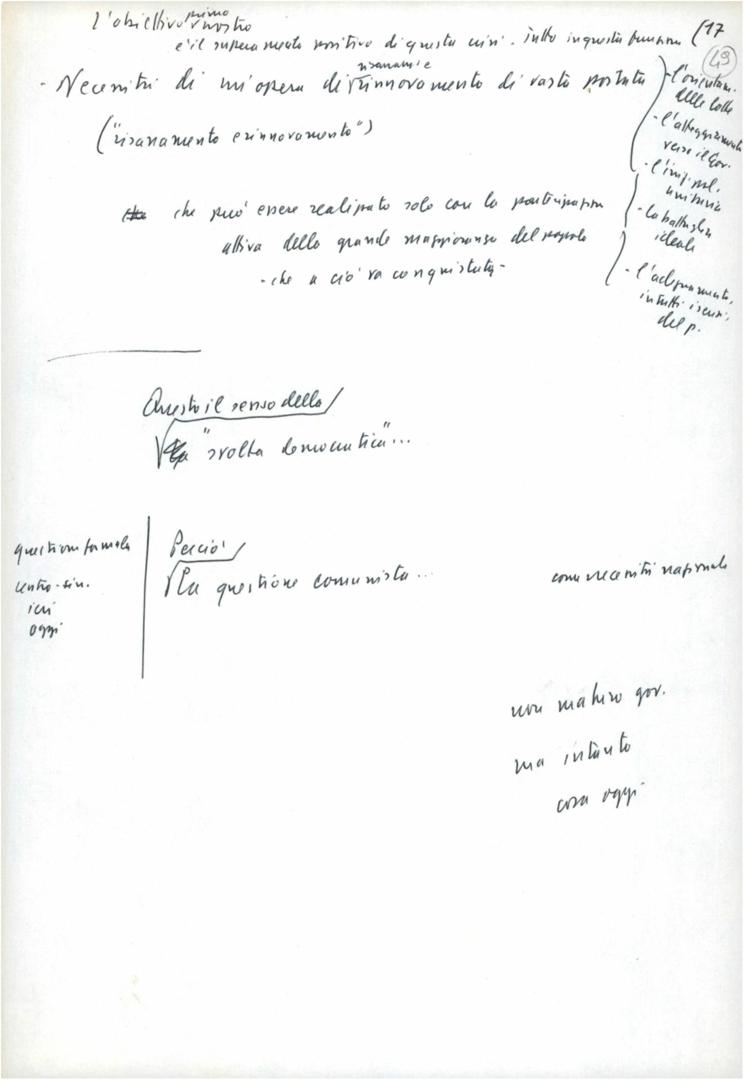 (17
49
L'obiettivo primo nostro
è il superamento positivo di questa crisi. Tutto in questa funzione
- Necessità di un'opera di risanam. e rinnovamento di vasta portata
("risanamento e rinnovamento")
che può essere realizzato solo con la partecipazione
attiva della grande maggioranza del popolo
- che a ciò va conquistata -
- l'orientam.
delle lotte
- l'atteggiamento
verso il gov.
- l'iniz. pol.
unitaria
- la battaglia
ideale
- l'adeguamento,
in tutti i sensi,
del p.
Questo il senso della
"svolta democratica"...
questione formula
centro-sin.
ieri
oggi
Perciò
la questione comunista...
come necessità nazionale
non maturo gov.
ma intanto
cosa oggi